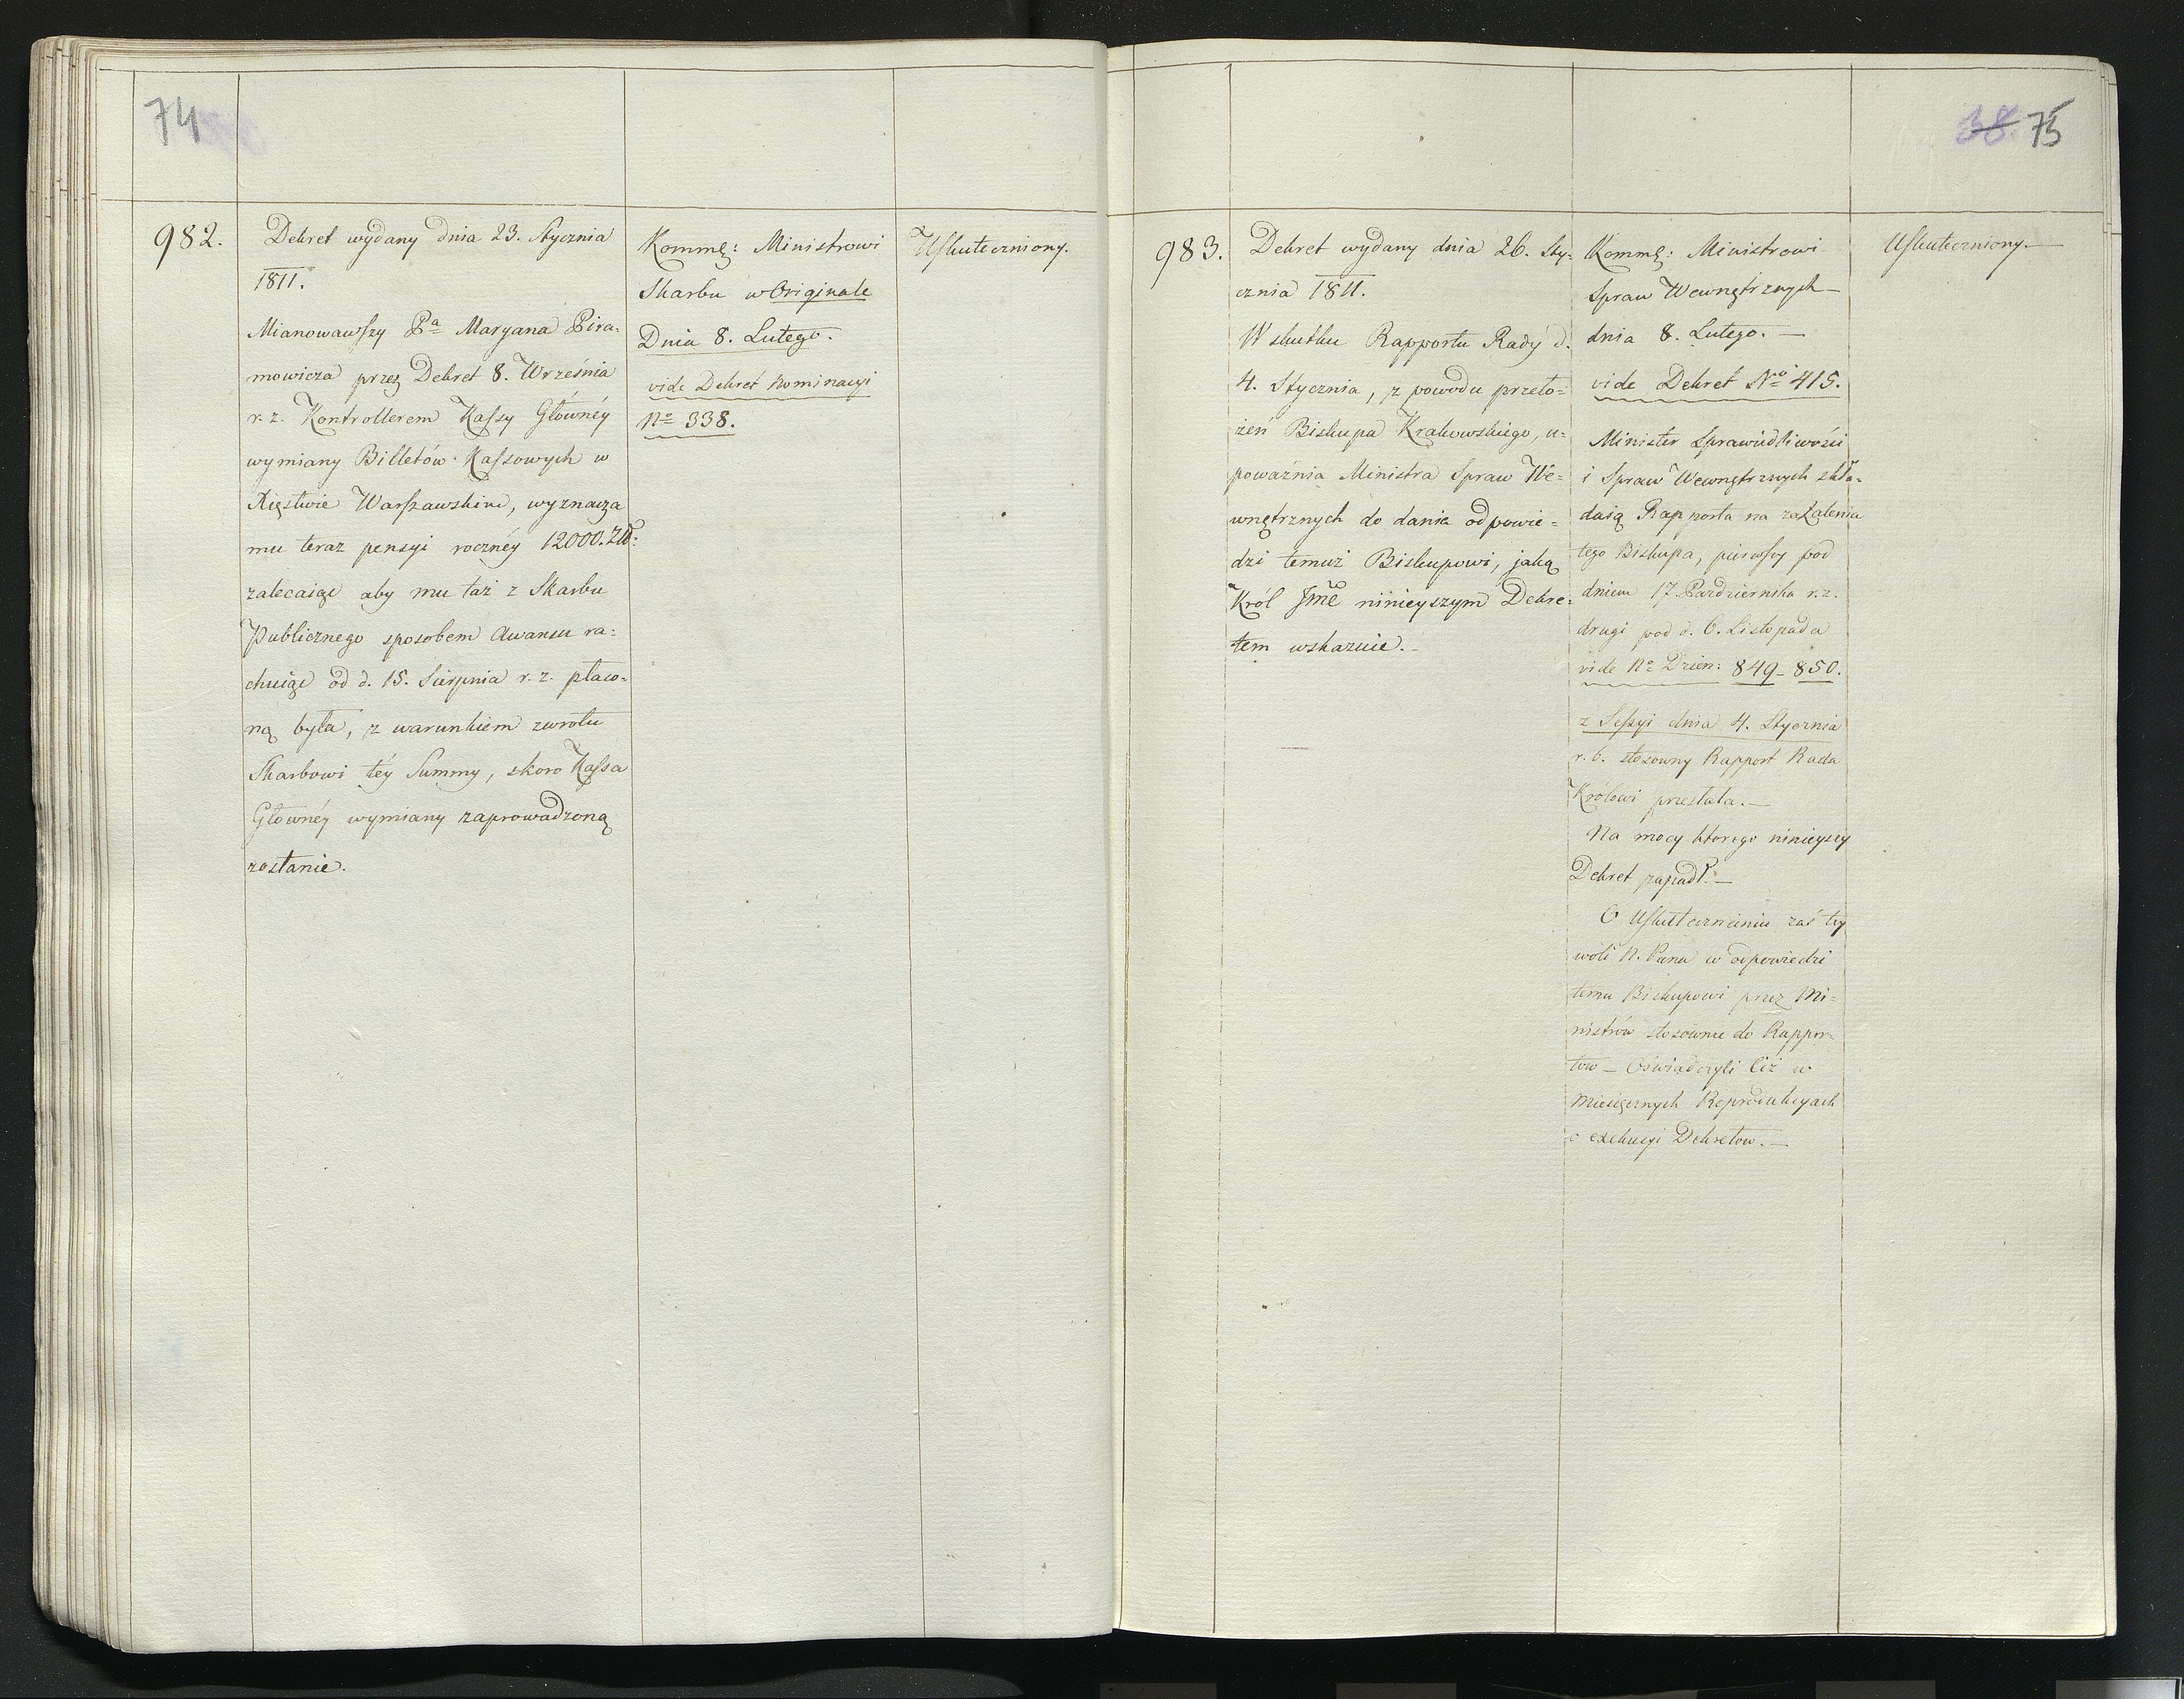 74
982.
Dekret wydany dnia 23. Stycznia
1811.
Mianowawszy Pa Maryana Pira-
mowicza przez Dekret 8. Września
r. z. Kontrollerem Kassy Głównéy
wymiany Billetów Kassowych w
Xięstwie Warszawskim, wyznacza
mu teraz pensyi rocznéy 12000. Złł:
zalecaiąc aby mu taż z Skarbu
Publicznego sposobem Awansu ra-
chuiąc od d. 15. Sierpnia r. z. płaco-
ną była, z warunkiem zwrotu
Skarbowi téy Summy, skoro Kassa
Głównéy wymiany zaprowadzoną
zostanie.
Kommę: Ministrowi
Skarbu w Originale
Dnia 8. Lutego.
vide Dekret Nominacyi
No 338.
Uskuteczniony.
38. 75
983.
Dekret wydany dnia 26. Sty-
cznia 1811.
W skutku Rapportu Rady d.
4. Stycznia, z powodu przeło-
żeń Biskupa Krakowskiego, u-
poważnia Ministra Spraw We-
wnętrznych do dania odpowie-
dzi temuż Biskupowi, jaką
Król Jmć ninieyszym Dekre-
tem wskazuie.
Kommę: Ministrowi
Spraw Wewnętrznych
dnia 8. Lutego.
vide Dekret Nro 415.
Minister Sprawiedliwości
i Spraw Wewnętrznych skła-
daią Rapporta na zażalenia
tego Biskupa, pierwszy pod
dniem 17. Października r. z.
drugi pod d. 6. Listopada
vide No Dzien: 849 - 850.
z Sessyi dnia 4. Stycznia
r. b. stosowny Rapport Rada
Królowi przesłała.
Na mocy ktorego ninieyszy
Dekret zapadł.
O Uskutecznieniu zaś tey
woli N. Pana w odpowiedzi
temu Biskupowi przez Mi-
nistrów stosownie do Rappor-
tow - Oświadczyli Ciż w
Miesięcznych Reprodukcyach
o exekucyi Dekretow.
Uskuteczniony.